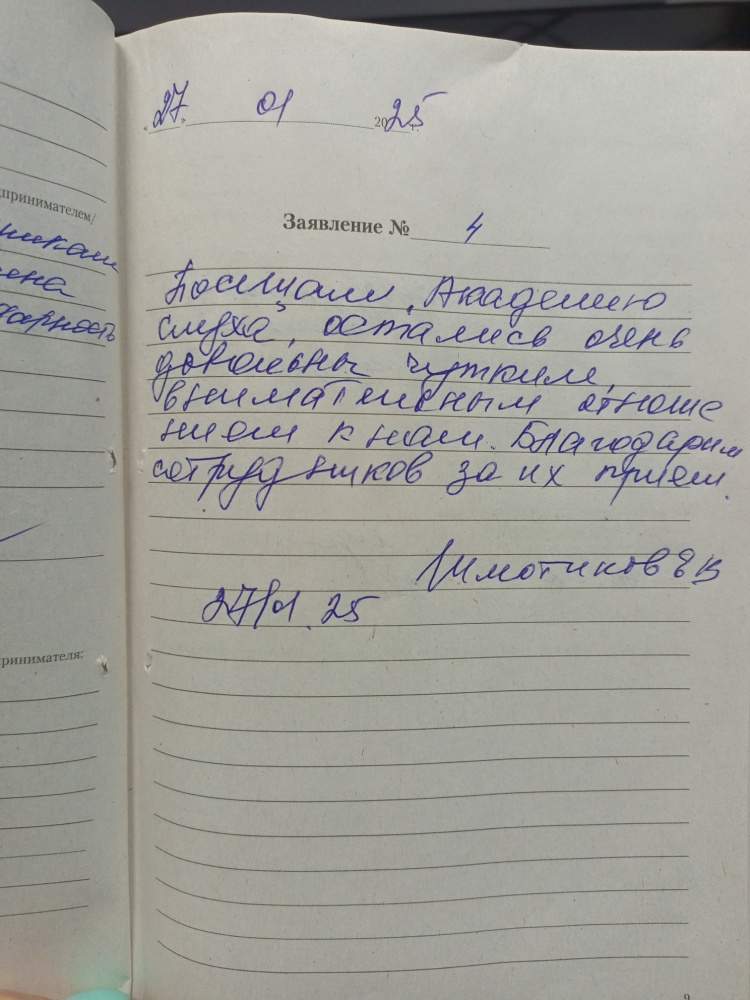 дпринимателем/
никам
ена
дарность
ринимателя:
27. 01 2025 г.
Заявление № 4
Посещали „Академию
слуха", остались очень
довольны чутким,
внимательным отноше
нием к нам. Благодарим
сотрудников за их прием.
27/01.25
9